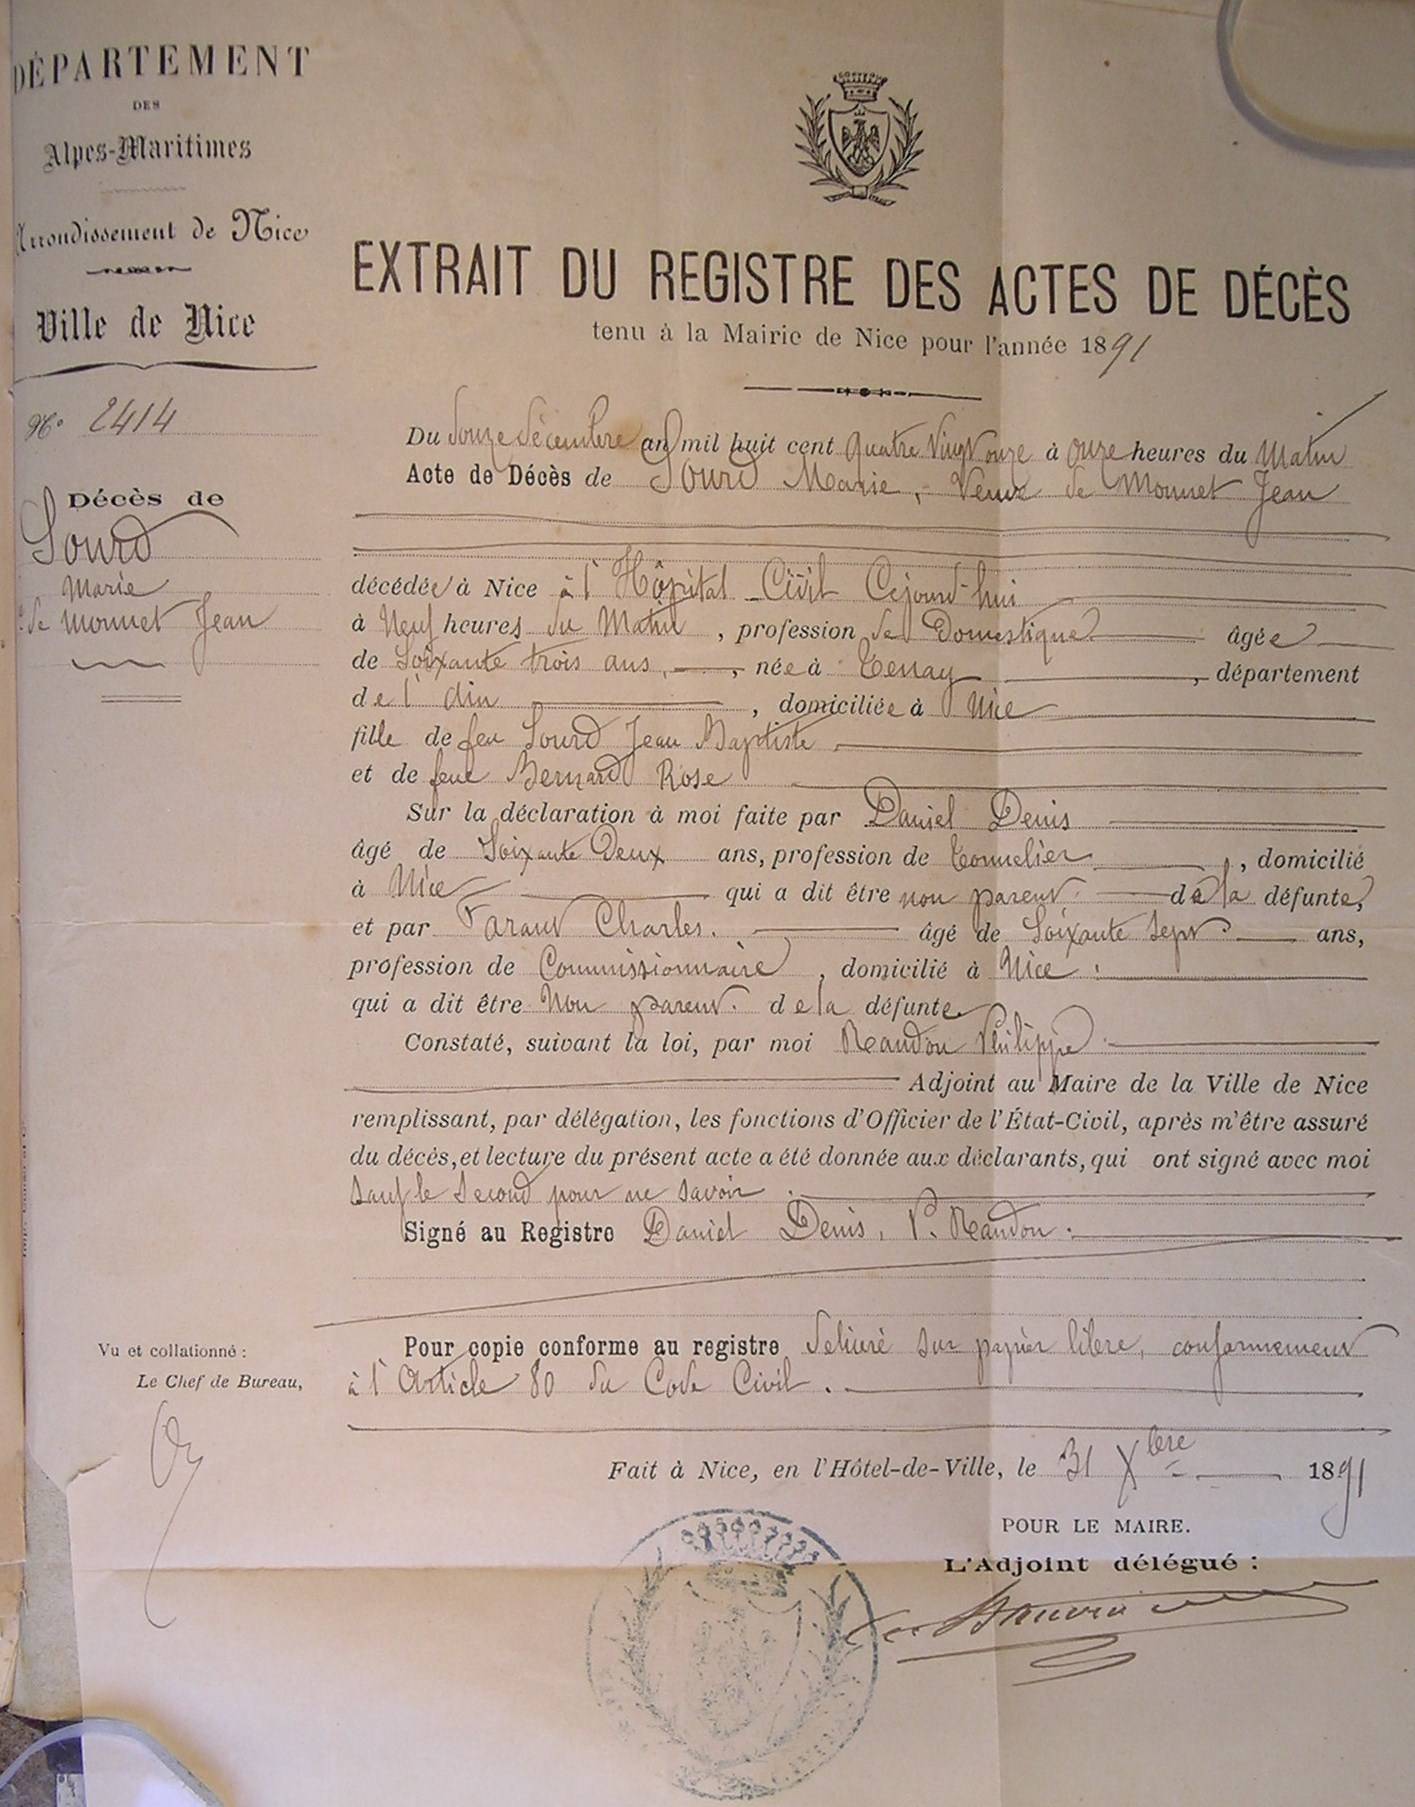 DÉPARTEMENT
DES
Alpes-Maritimes
Arrondissement de Nice
Ville de Nice
N° 2414
Décès de
Sourd
Marie
de Monnet Jean
EXTRAIT DU REGISTRE DES ACTES DE DÉCÈS
tenu à la Mairie de Nice pour l'année 1891
Du douze décembre an mil huit cent quatre vingt onze à onze heures du Matin
Acte de Décès de Sourd Marie, Veuve de Monnet Jean
décédée à Nice à l'Hôpital Civil Cejourd'hui
à Neuf heures du Matin, profession de Domestique âgée
de Soixante trois ans, née à Tenay, département
de l'Ain, domiciliée à Nice
fille de feu Sourd Jean Baptiste
et de feue Bernard Rose
Sur la déclaration à moi faite par Daniel Denis
âgé de Soixante Deux ans, profession de Tonnelier, domicilié
à Nice qui a dit être non parent de la défunte,
et par Faraut Charles. âgé de Soixante sept ans,
profession de Commissionnaire, domicilié à Nice
qui a dit être Non parent. de la défunte
Constaté, suivant la loi, par moi Raudon Philippe
Adjoint au Maire de la Ville de Nice
remplissant, par délégation, les fonctions d'Officier de l'État-Civil, après m'être assuré
du décès, et lecture du présent acte a été donnée aux déclarants, qui ont signé avec moi
sauf le second pour ne savoir.
Signé au Registre Daniel Denis, P. Raudon.
Pour copie conforme au registre délivré sur papier libre, conformement
à l'Article 80 du Code Civil.
Vu et collationné :
Le Chef de Bureau,
Fait à Nice, en l'Hôtel-de-Ville, le 31 Xbre 1891
POUR LE MAIRE.
L'Adjoint délégué :